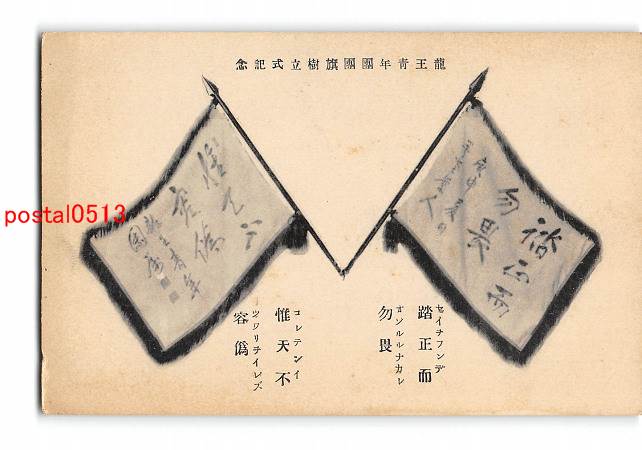 龍王青年團團旗樹立式記念
踏正而
セイヲフンデ
勿畏
オソルルナカレ
惟天不
コレテンイ
容僞
ツワリヲイレズ
踏正而
勿畏
惟天不
容僞
龍王青年
團旗
postal0513